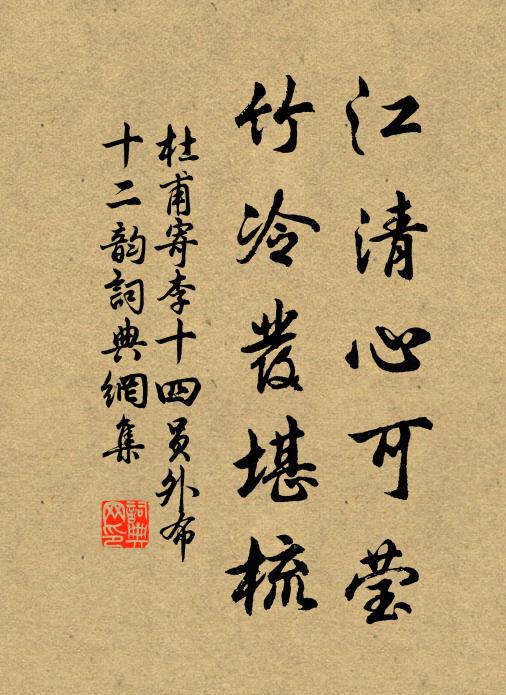 江清心可莹
竹冷發堪梳
杜甫寄李十四员外布
十二韵詞典網集
詞典網印